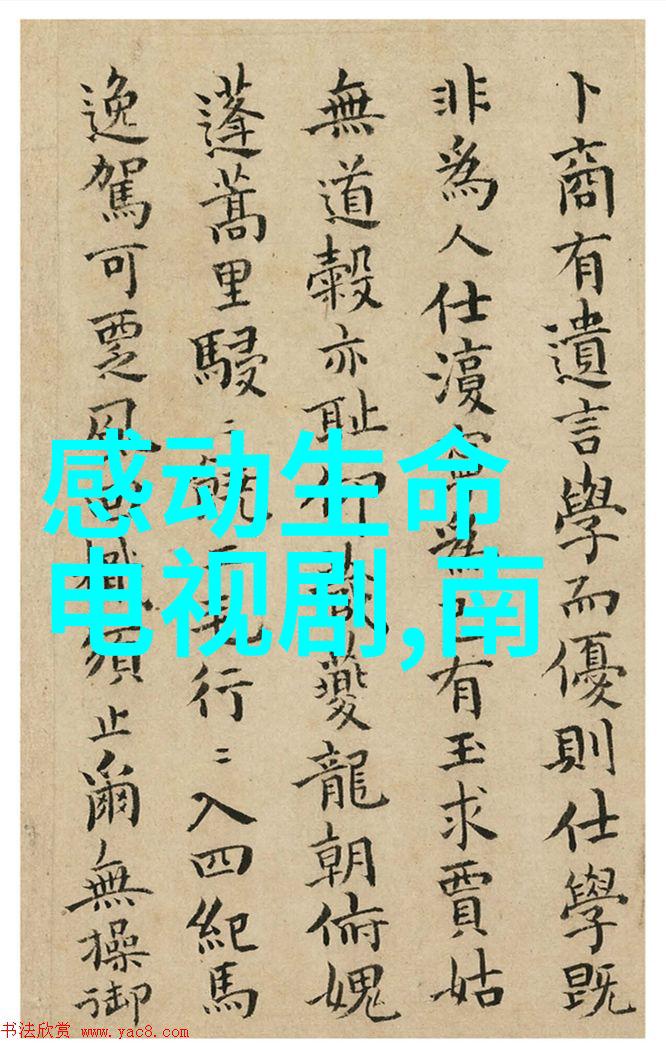 卜商有遺言學而優則仕學既
非爲人仕復爲有玉求賈姑
無道穀亦恥仰夔龍朝俯愧
蓬蒿里駸〻行〻入四紀馬
逸駕可覂風須止爾無操御
感动生命
电视剧,南
书法欣赏 www.yac8.com